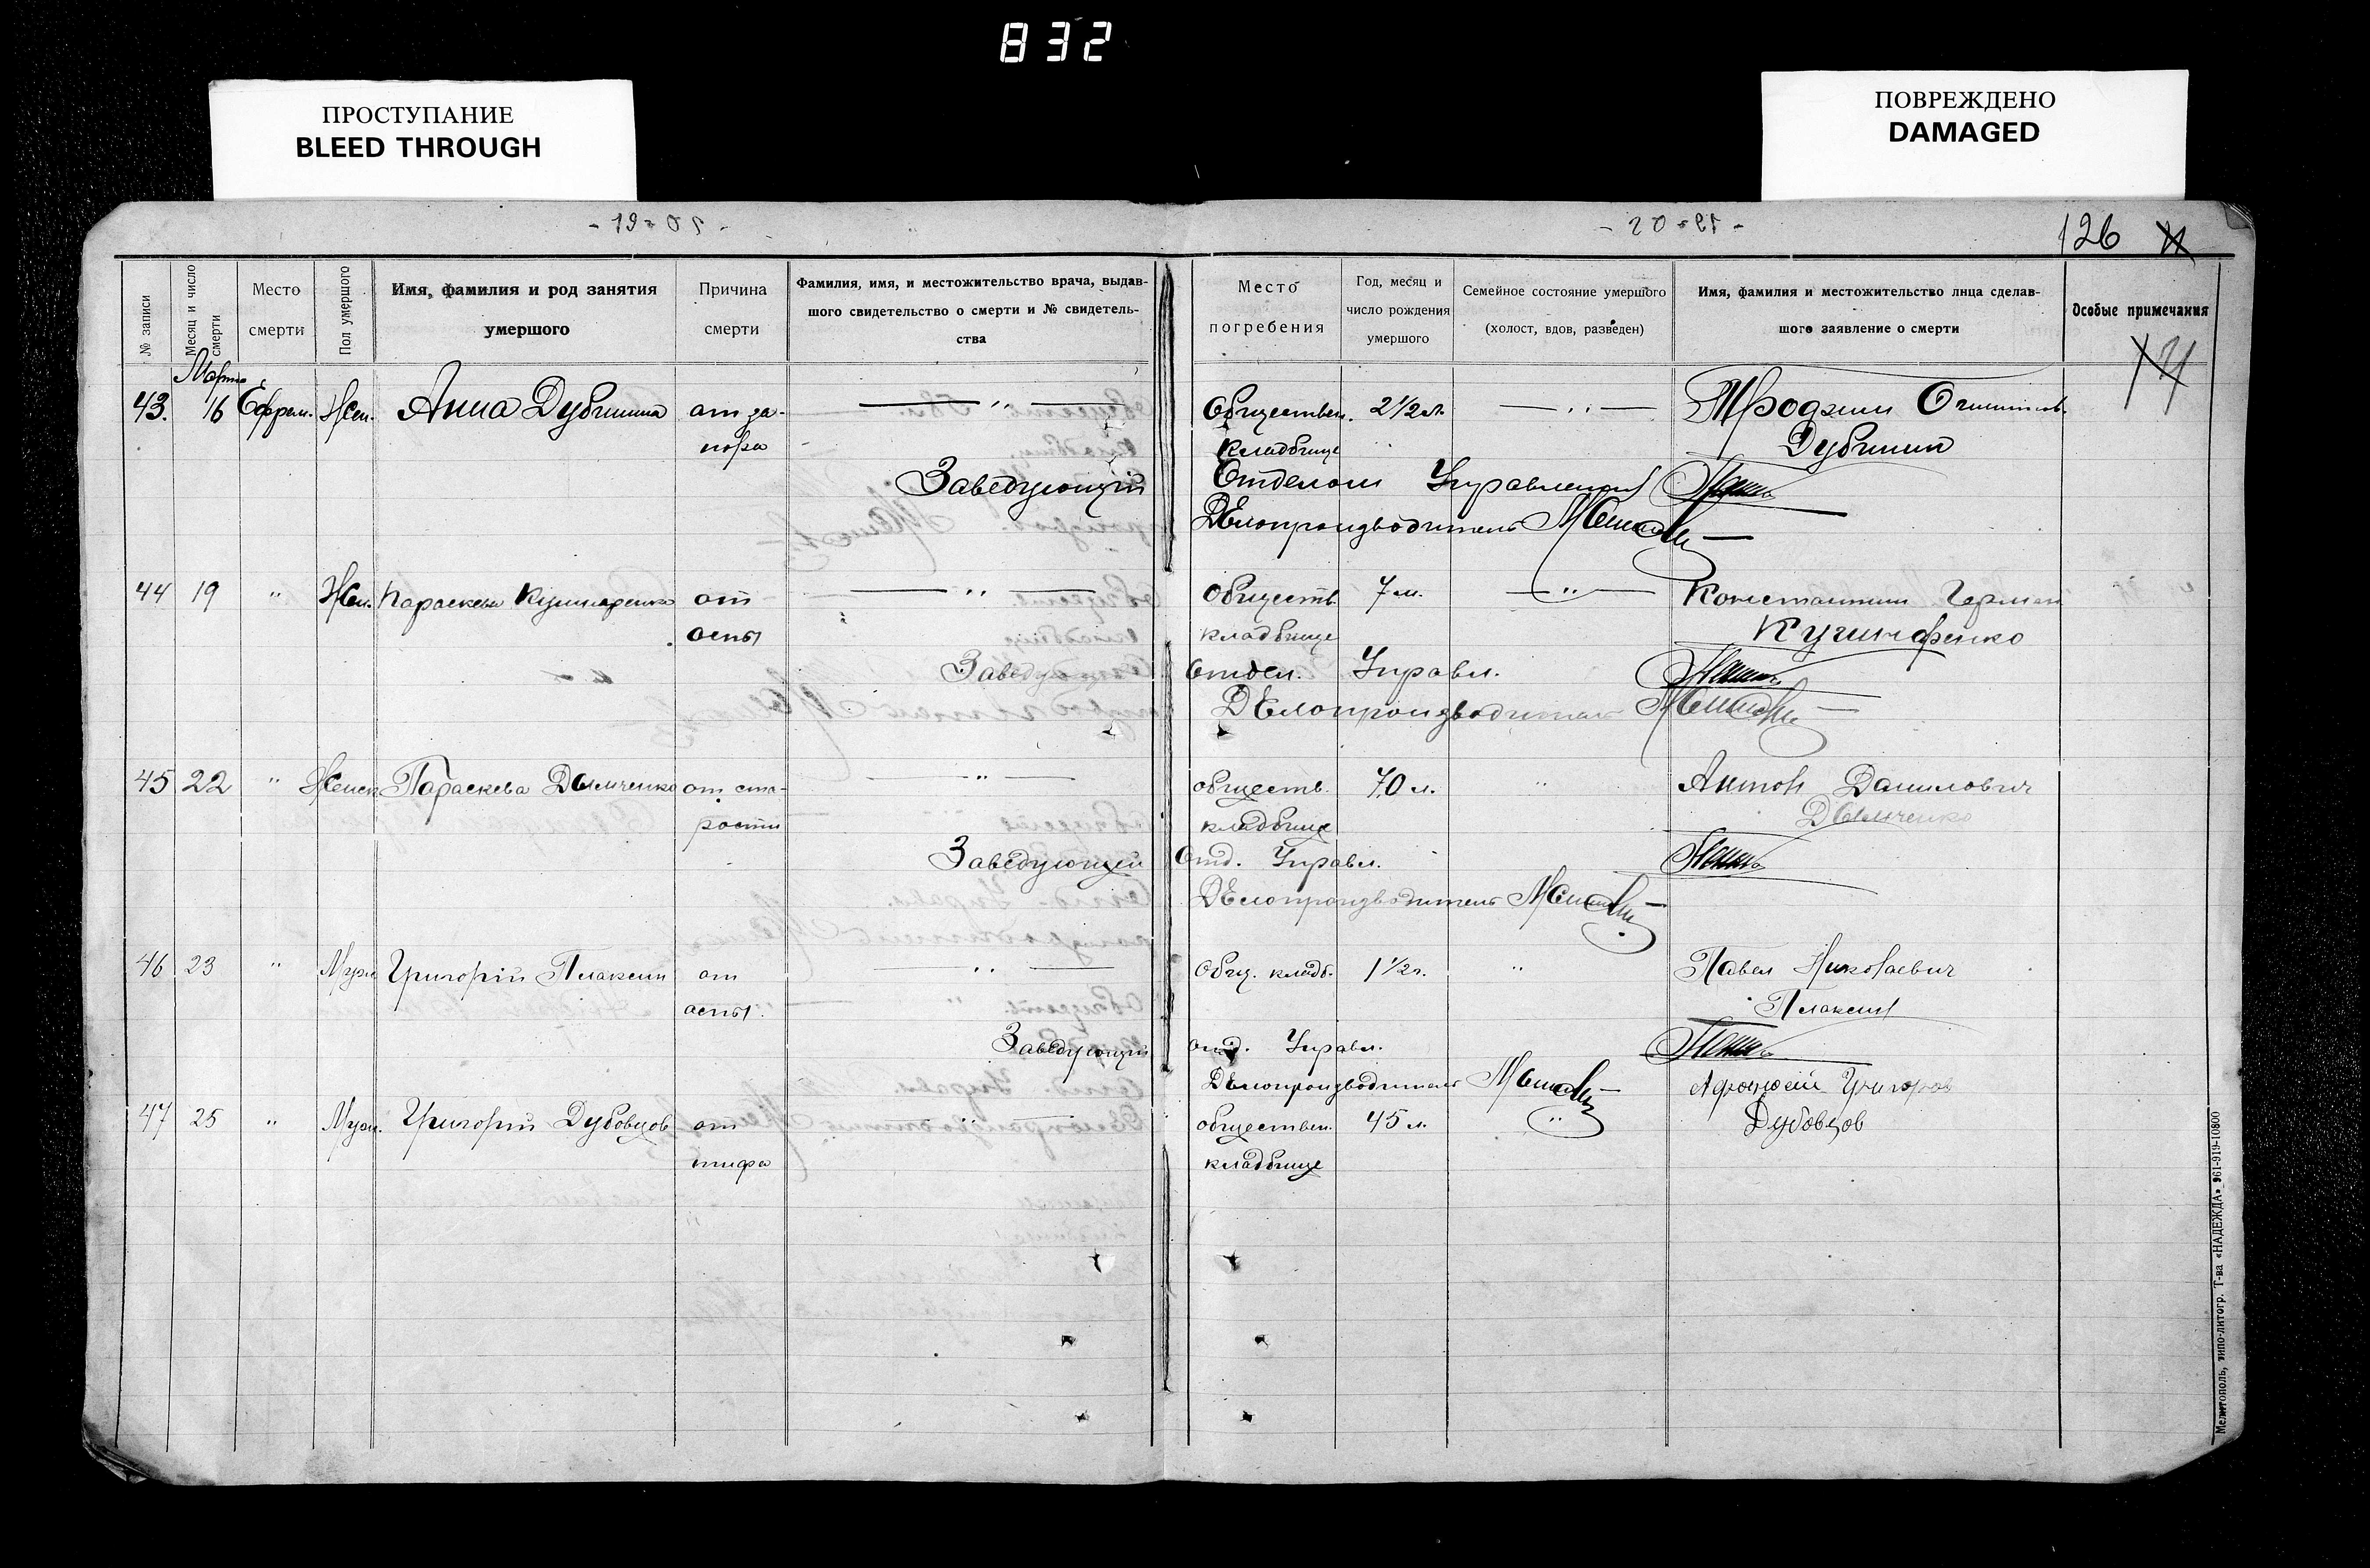 832
ПРОСТУПАНИЕ
BLEED THROUGH
ПОВРЕЖДЕНО
DAMAGED
126
№ записи
Месяц и число смерти
Место смерти
Пол умершого
Имя, фамилия и род занятия умершого
Причина смерти
Фамилия, имя, и местожительство врача, выдавшого свидетельство о смерти и № свидетельства
Место погребения
Год, месяц и число рождения умершого
Семейное состояние умершого (холост, вдов, разведен)
Имя, фамилия и местожительство лица сделавшого заявление о смерти
Особые примечания
Март
43. 16 Ефрем. Жен. Анна Дубинина от за- — " — Обществен. 2 1/2 л. — " —
пора кладбище Дубинин
Заведующій Отделом Управления
Дѣлопроизводитель
44 19 " Жен. Параскева от — " — Обществ. 7 м. — " — Константин Герман
оспы кладбище
Заведующ Отдел. Управл.
Дѣлопроизводитель
45 22 " Женск Параскева от ста- — " — обществ. 70 л. " Антон Данилович
рости кладбище
Заведующій Отд. Управл.
Дѣлопроизводитель
46 23 " Муж Григорій Плаксин от — " — Общ. кладб. 1 1/2 г. " Павел Николаевич
оспы. Плаксин
Заведующій отд. Управл.
Дѣлопроизводитель
47 25 " Муж. Григорій Дубовцов от " — обществен. 45 л. " Григоров
тифа кладбище Дубовцов
Мелитополь, типо-литогр. Т-ва «НАДЕЖДА» 961-919-10800